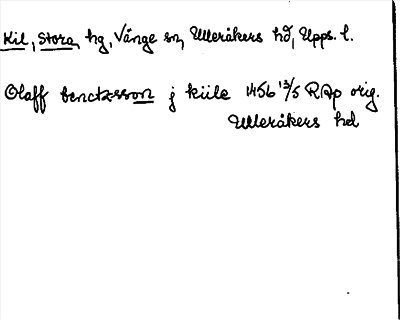 Kil, Stora, hg, Vänge sn, Ulleråkers hd, Upps. l.
Olaff benctzsson j kiile 1456 13/5 RAp orig.
Ulleråkers hd